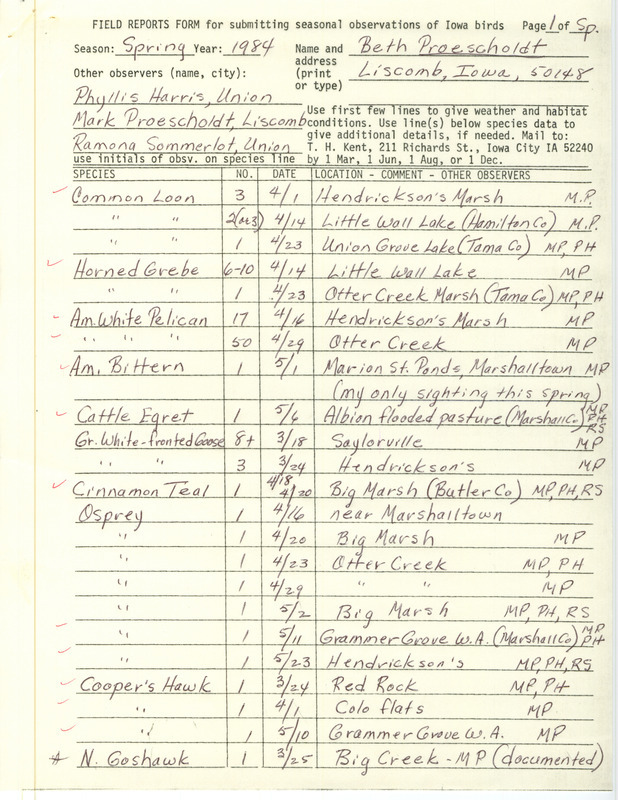 FIELD REPORTS FORM for submitting seasonal observations of Iowa birds Page 1 of Sp.
Season: Spring Year: 1984 Name and address (print or type) Beth Proescholdt
Liscomb, Iowa, 50148
Other observers (name, city):
Phyllis Harris, Union
Mark Proescholdt, Liscomb
Ramona Sommerlot, Union
use initials of obsv. on species line
Use first few lines to give weather and habitat
conditions. Use line(s) below species data to
give additional details, if needed. Mail to:
T. H. Kent, 211 Richards St., Iowa City IA 52240
by 1 Mar, 1 Jun, 1 Aug, or 1 Dec.
SPECIES NO. DATE LOCATION - COMMENT - OTHER OBSERVERS
Common Loon 3 4/1 Hendrickson's Marsh M.P.
" " 2(or3) 4/14 Little Wall Lake (Hamilton Co) M.P.
" " 1 4/23 Union Grove Lake (Tama Co) MP, PH
Horned Grebe 6-10 4/14 Little Wall Lake MP
" " 1 4/23 Otter Creek Marsh (Tama Co) MP, PH
Am. White Pelican 17 4/16 Hendrickson's Marsh MP
" " " 50 4/29 Otter Creek MP
Am. Bittern 1 5/1 Marion St. Ponds, Marshalltown MP
(my only sighting this spring)
Cattle Egret 1 5/6 Albion flooded pasture (Marshall Co) MP PH RS
Gr. White-fronted Goose 8+ 3/18 Saylorville MP
" " 3 3/24 Hendrickson's MP
Cinnamon Teal 1 4/18 4/20 Big Marsh (Butler Co) MP, PH, RS
Osprey 1 4/16 near Marshalltown
" 1 4/20 Big Marsh MP
" 1 4/23 Otter Creek MP, PH
" 1 4/29 " " MP
" 1 5/2 Big Marsh MP, PH, RS
" 1 5/11 Grammer Grove W.A. (Marshall Co) MP PH
" 1 5/23 Hendrickson's MP, PH, RS
Cooper's Hawk 1 3/24 Red Rock MP, PH
" 1 4/1 Colo flats MP
" 1 5/10 Grammer Grove W.A. MP
* N. Goshawk 1 3/25 Big Creek - MP (documented)